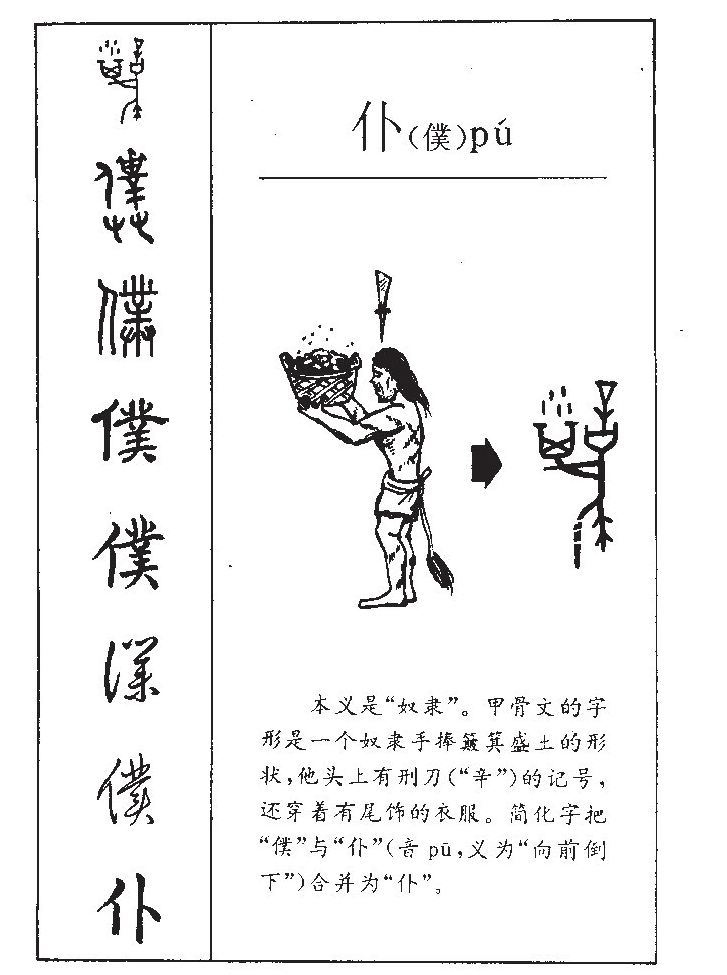 仆(僕)pú
本义是“奴隶”。甲骨文的字
形是一个奴隶手捧簸箕盛土的形
状,他头上有刑刀(“辛”)的记号,
还穿着有尾饰的衣服。简化字把
“僕”与“仆”(音 pū,义为“向前倒
下”)合并为“仆”。
僕
僕
僕
僕
仆